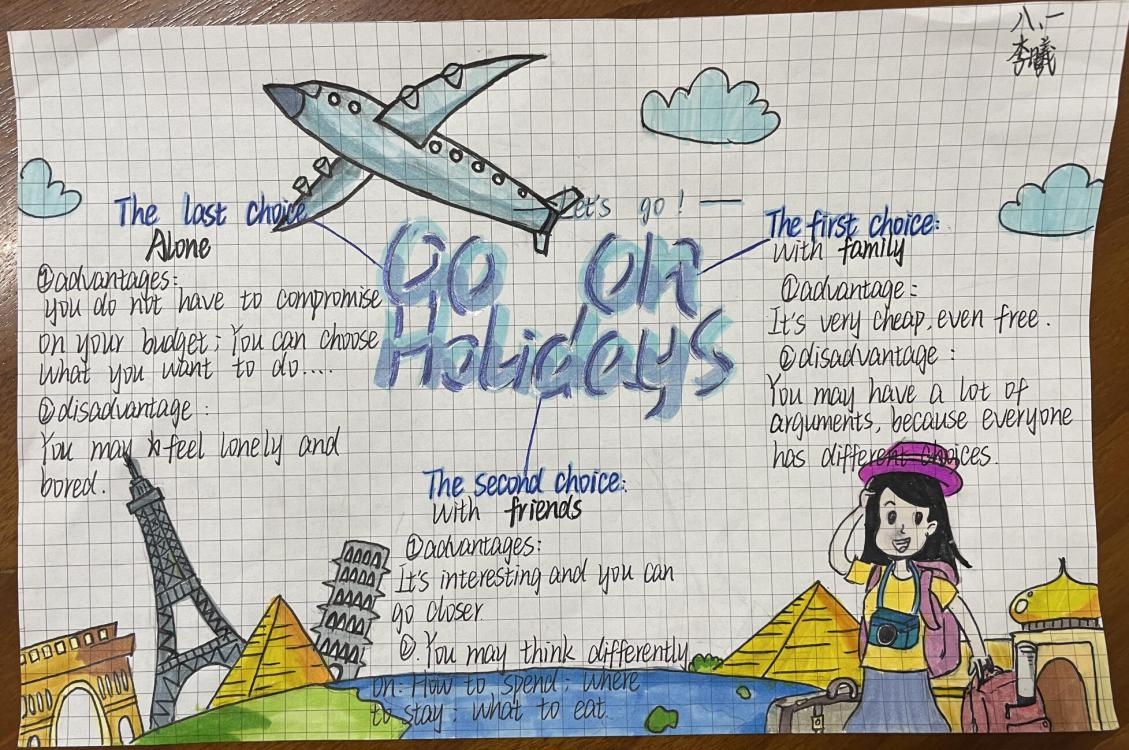 八、一
李曦
Let's go! —
Go On
Holidays
The last choice
Alone
①advantages:
you do not have to compromise
on your budget; You can choose
what you want to do....
②disadvantage:
You may feel lonely and
bored.
The first choice:
with family
①advantage:
It's very cheap, even free.
②disadvantage:
You may have a lot of
arguments, because everyone
has different choices.
The second choice:
with friends
①advantages:
It's interesting and you can
go closer.
②.You may think differently
on: How to spend; where
to stay; what to eat.